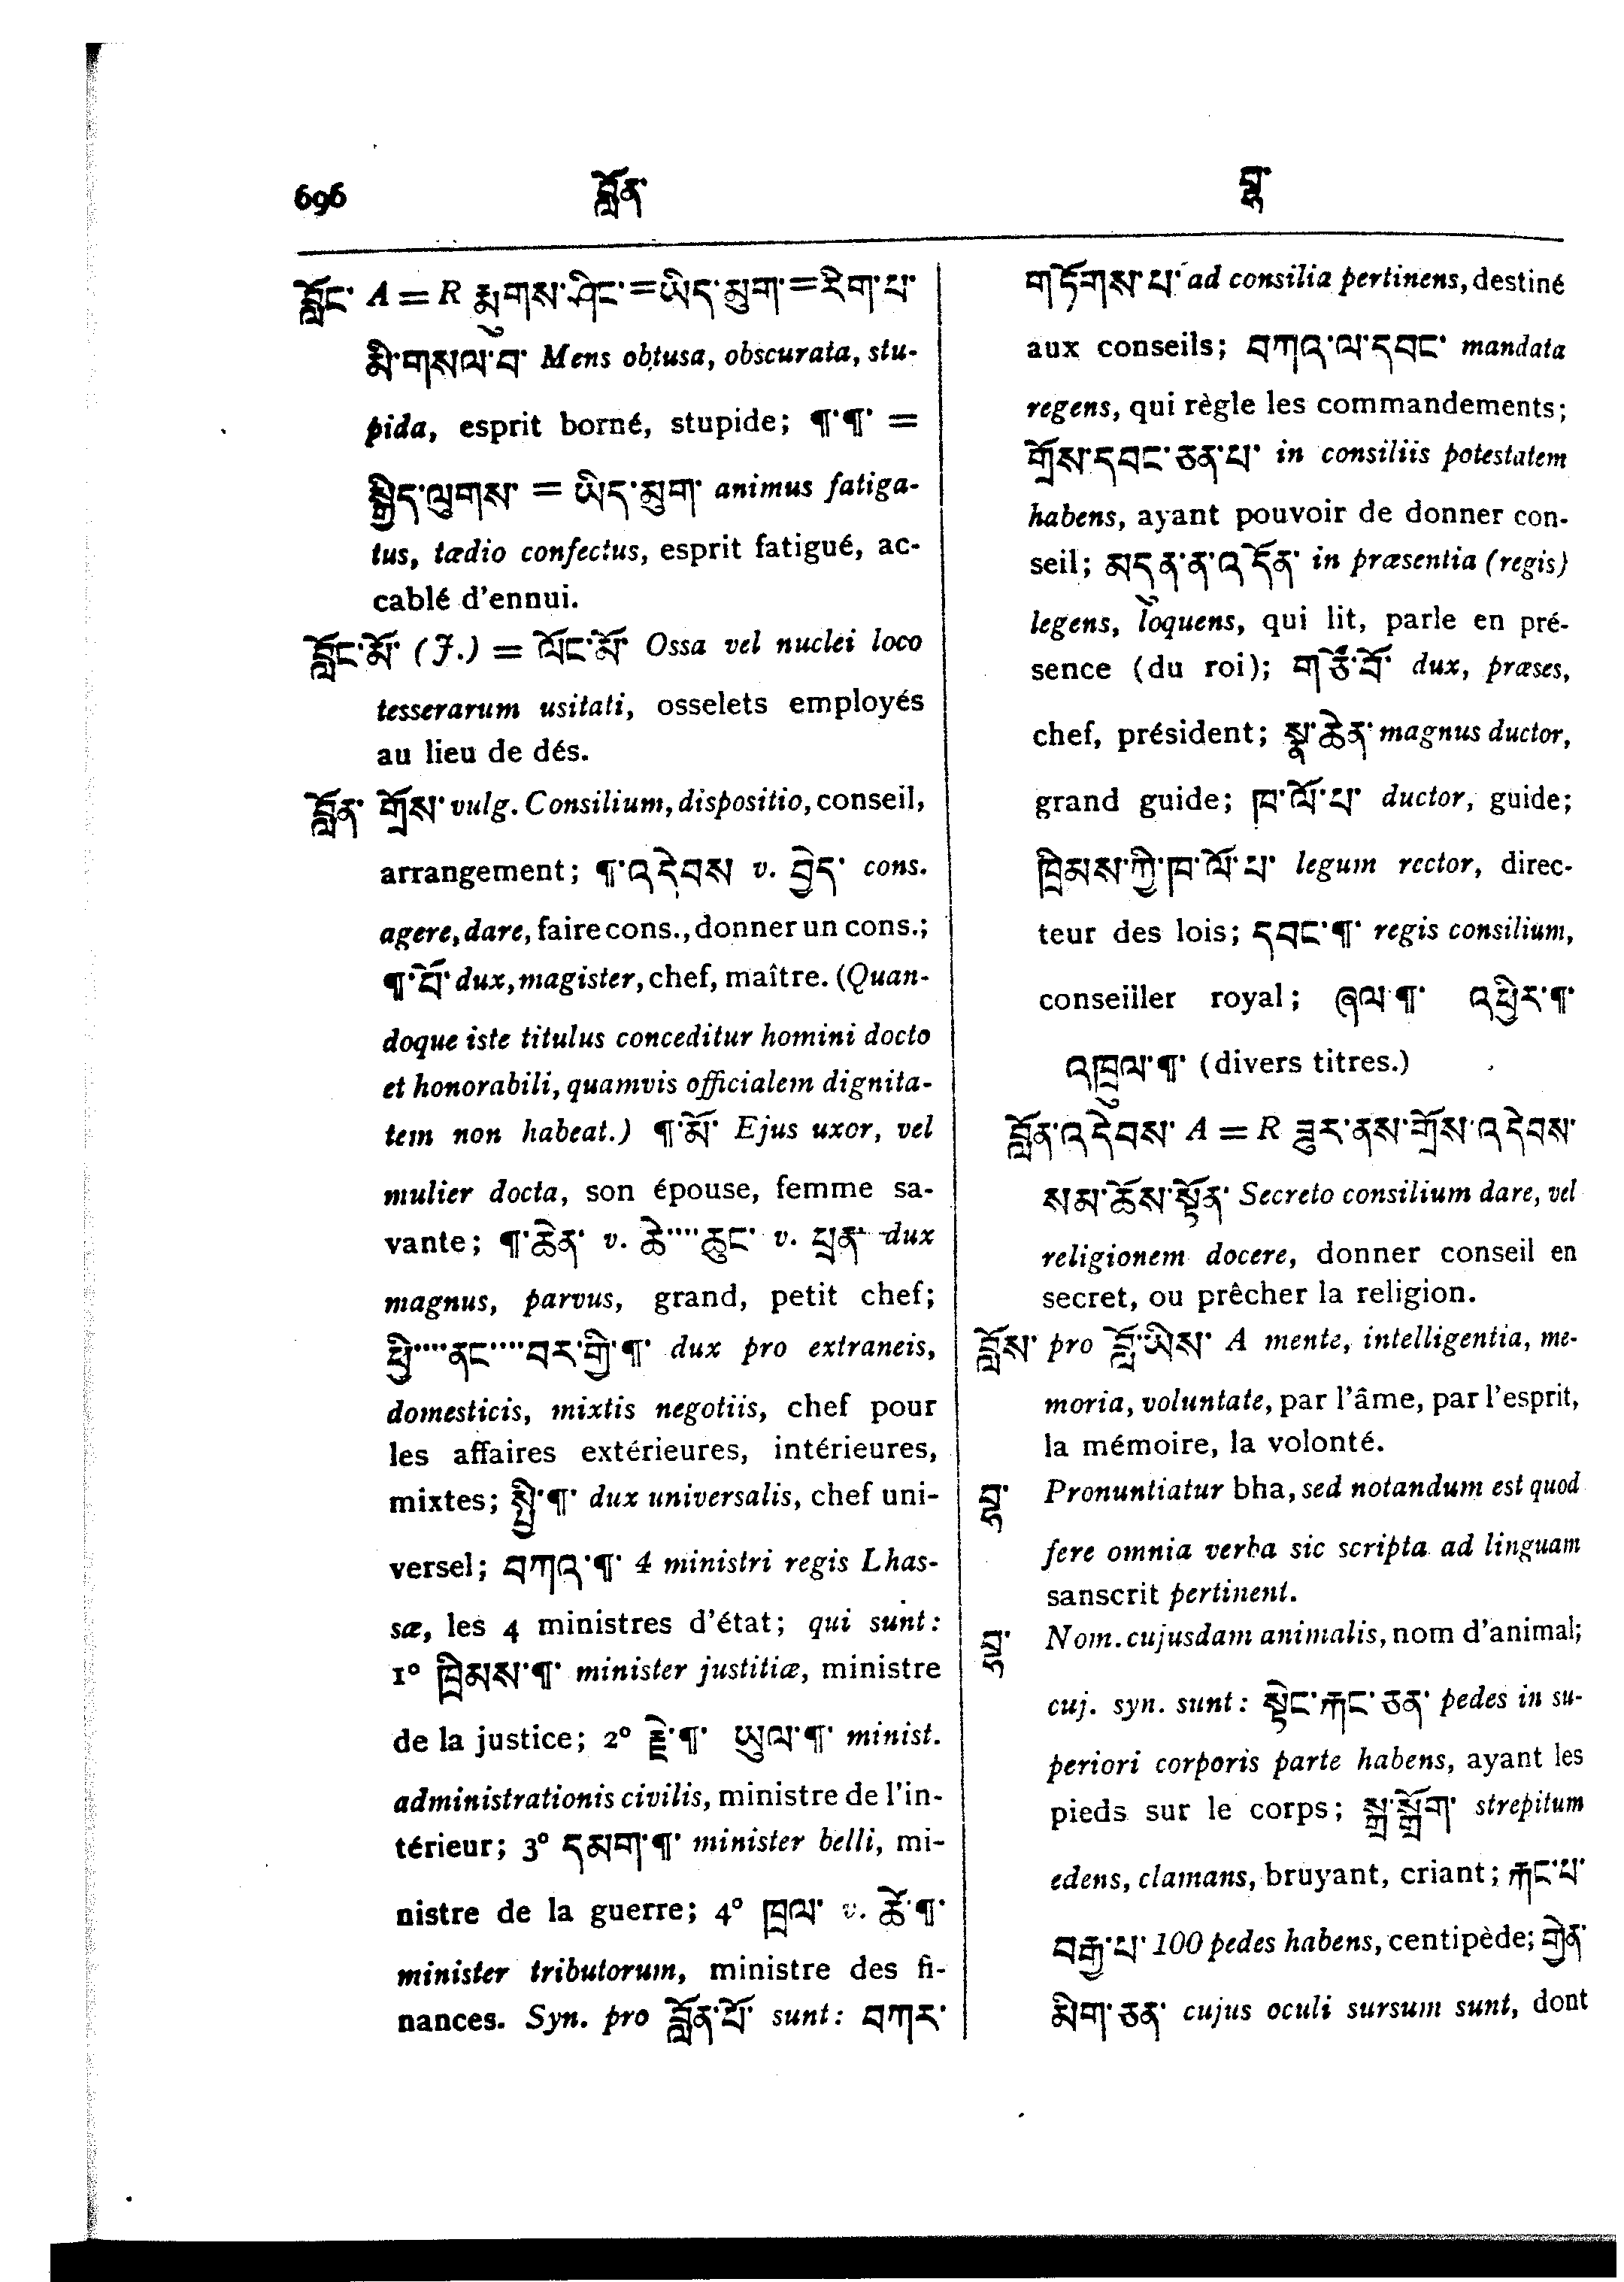 696 བློན་ བྷ་
བློང་ A = R རྨུགས་ཤིང་=ཡིད་མུག་=རིག་པ་
མི་གསལ་བ་ Mens obtusa, obscurata, stu-
pida, esprit borné, stupide; ¶་¶་ =
སྒྱིད་ལུགས་ = ཡིད་མུག་ animus fatiga-
tus, tædio confectus, esprit fatigué, ac-
cablé d'ennui.
བློང་མོ་ (J.) = ལོང་མོ་ Ossa vel nuclei loco
tesserarum usitati, osselets employés
au lieu de dés.
བློན་ གྲོས་ vulg. Consilium, dispositio, conseil,
arrangement; ¶་འདེབས v. བྱེད་ cons.
agere, dare, faire cons., donner un cons.;
¶་པོ་ dux, magister, chef, maître. (Quan-
doque iste titulus conceditur homini docto
et honorabili, quamvis officialem dignita-
tem non habeat.) ¶་མོ་ Ejus uxor, vel
mulier docta, son épouse, femme sa-
vante; ¶་ཆེན་ v. ཆེ་་་་ཆུང་ v. ཕྲན་ dux
magnus, parvus, grand, petit chef;
ཕྱི་་་་ནང་་་་བར་གྱི་¶་ dux pro extraneis,
domesticis, mixtis negotiis, chef pour
les affaires extérieures, intérieures,
mixtes; སྤྱི་¶་ dux universalis, chef uni-
versel; བཀའ་¶་ 4 ministri regis Lhas-
sæ, les 4 ministres d'état; qui sunt:
1º ཁྲིམས་¶་ minister justitiæ, ministre
de la justice; 2º རྫེ་¶་ ཡུལ་¶་ minist.
administrationis civilis, ministre de l'in-
térieur; 3º དམག་¶་ minister belli, mi-
nistre de la guerre; 4º ཁྲལ་ v. ཚོ་¶་
minister tributorum, ministre des fi-
nances. Syn. pro བློན་པོ་ sunt: བཀར་
གཏོགས་པ་ ad consilia pertinens, destiné
aux conseils; བཀའ་ལ་དབང་ mandata
regens, qui règle les commandements;
གྲོས་དབང་ཅན་པ་ in consiliis potestatem
habens, ayant pouvoir de donner con-
seil; མདུན་ན་འདོན་ in præsentia (regis)
legens, loquens, qui lit, parle en pré-
sence (du roi); གཙོ་བོ་ dux, præses,
chef, président; སྣ་ཆེན་ magnus ductor,
grand guide; ཁ་ལོ་པ་ ductor, guide;
ཁྲིམས་ཀྱི་ཁ་ལོ་པ་ legum rector, direc-
teur des lois; དབང་¶་ regis consilium,
conseiller royal; ཞལ་¶་ འཕྱིར་¶་
འཁྲུལ་¶་ (divers titres.)
བློན་འདེབས་ A = R ཟུར་ནས་གྲོས་འདེབས་
སམ་ཆོས་སྟོན་ Secreto consilium dare, vel
religionem docere, donner conseil en
secret, ou prêcher la religion.
བློས་ pro བློ་ཡིས་ A mente, intelligentia, me-
moria, voluntate, par l'âme, par l'esprit,
la mémoire, la volonté.
བྷ་ Pronuntiatur bha, sed notandum est quod
fere omnia verba sic scripta ad linguam
sanscrit pertinent.
བྷ་ Nom. cujusdam animalis, nom d'animal;
cuj. syn. sunt: སྟེང་རྐང་ཅན་ pedes in su-
periori corporis parte habens, ayant les
pieds sur le corps; སྒྲ་སྒྲོག་ strepitum
edens, clamans, bruyant, criant; རྐང་པ་
བརྒྱ་པ་ 100 pedes habens, centipède; གྱེན་
མིག་ཅན་ cujus oculi sursum sunt, dont